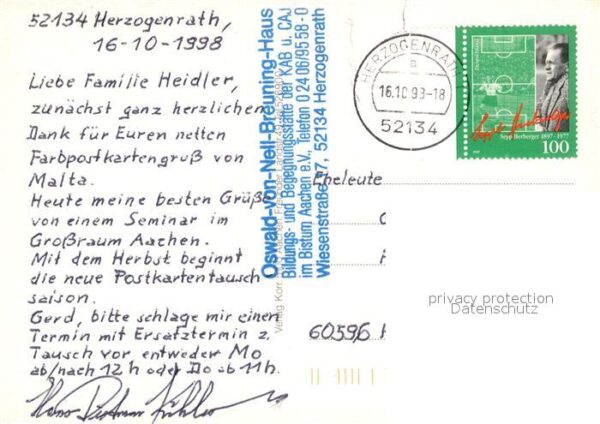 52134 Herzogenrath,
16-10-1998
Liebe Familie Heidler,
zunächst ganz herzlichen
Dank für Euren netten
Farbpostkartengruß von
Malta.
Heute meine besten Grüße
von einem Seminar im
Großraum Aachen.
Mit dem Herbst beginnt
die neue Postkartentausch
saison.
Gerd, bitte schlage mir einen
Termin mit Ersatztermin z.
Tausch vor entweder Mo
ab/nach 12 h oder Do ab 11h.
Oswald-von-Nell-Breuning-Haus
Bildungs- und Begegnungsstätte der KAB u. CAJ
im Bistum Aachen e.V. Telefon 0 24 06/95 58-0
Wiesenstraße 17, 52134 Herzogenrath
HERZOGENRATH
a
16.10.98-18
52134
Sepp Herberger
Sepp Herberger 1897-1977
100
Eheleute
60596
privacy protection
Datenschutz